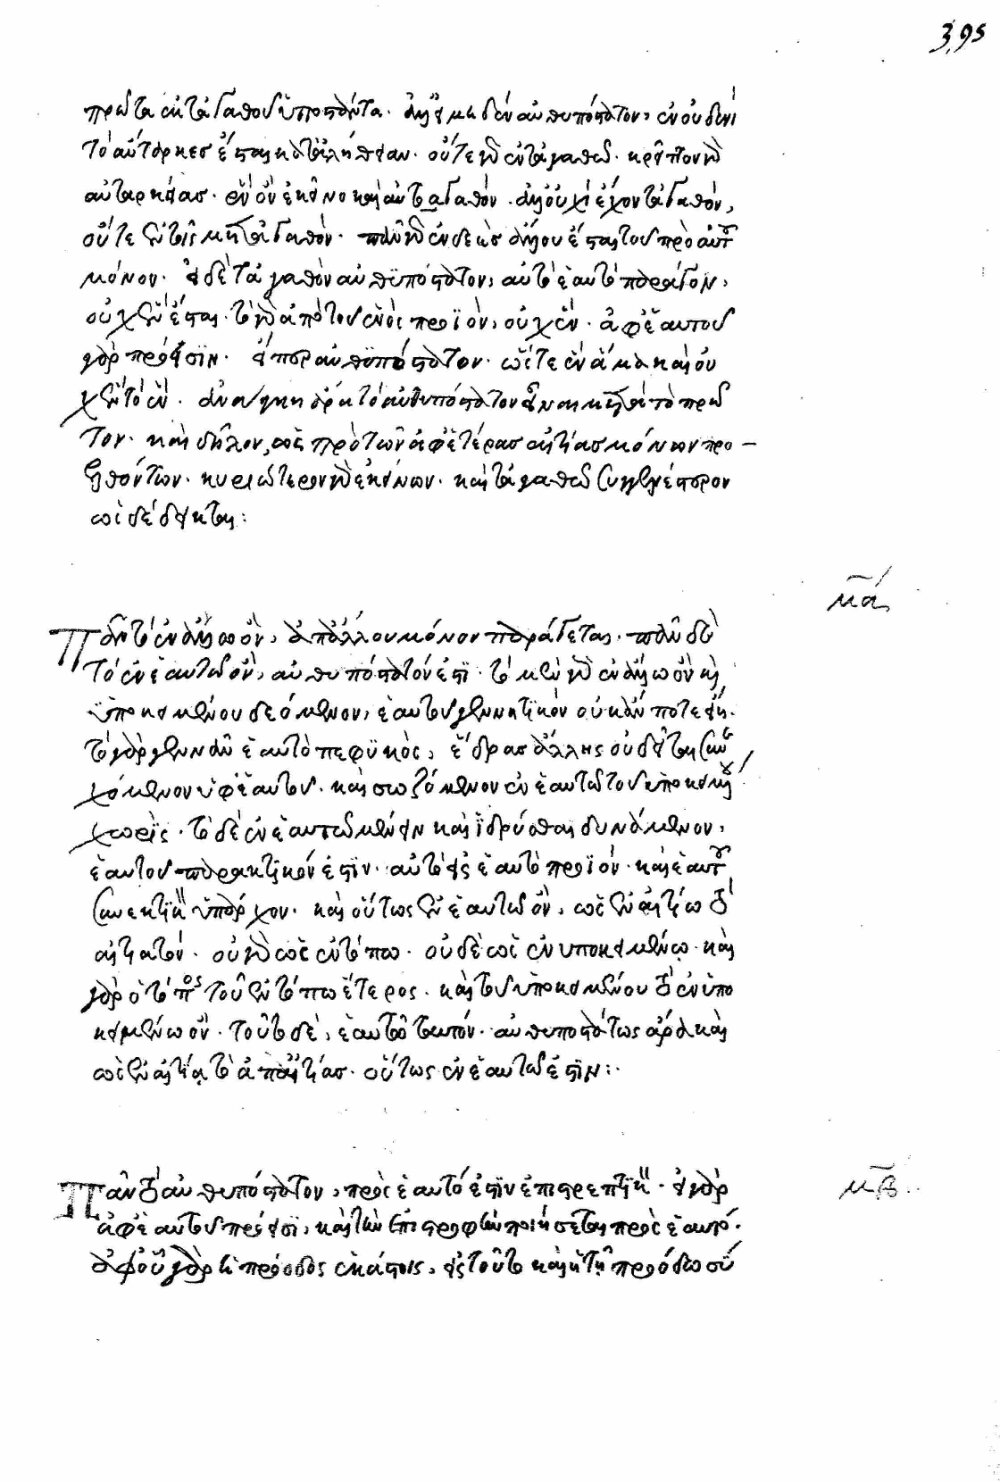 πρῶτα ἐκ τἀγαθοῦ ὑποστάντα. εἰ γὰρ μηδὲν αὐθυπόστατον, ἐν οὐδενὶ
τὸ αὔταρκες ἔσται κατ᾽ ἀλήθειαν. οὔτε γὰρ ἐν τἀγαθῷ. κρεῖττον γὰρ
αὐταρκείας. ἓν ὂν ἐκεῖνο καὶ αὐταγαθόν. ἀλλ᾽ οὐχὶ ἔχον τἀγαθόν,
οὔτε ἐν τοῖς μετὰ τἀγαθόν. πάντα γὰρ ἐνδεῶς ἄλλου ἔσται τοῦ πρὸ αὐτοῦ
μόνου. εἰ δὲ τἀγαθὸν αὐθυπόστατον, αὐτὸ ἑαυτὸ παράγον,
οὐχ ἓν ἔσται. τὸ γὰρ ἀπὸ τοῦ ἑνὸς προϊόν, οὐχ ἕν. ἀφ᾽ ἑαυτοῦ
γὰρ πρόεισιν. εἴπερ αὐθυπόστατον. ὥστε ἓν ἅμα καὶ οὐ
χ ἓν τὸ ἕν. ἀνάγκη ἄρα τὸ αὐθυπόστατον εἶναι μετὰ τὸ πρῶ
τον. καὶ δῆλον, ὡς πρὸ τῶν ἀφ᾽ ἑτέρας αἰτίας μόνων προ–
ελθόντων. κυριώτερον γὰρ ἐκείνων. καὶ τἀγαθῷ συγγενέστερον
ὡς δέδεικται:
μα
Πᾶν τὸ ἐν ἄλλῳ ὄν, ἀπ᾽ ἄλλου μόνον παράγεται. πᾶν δὲ
τὸ ἐν ἑαυτῷ ὄν, αὐθυπόστατόν ἐστι. τὸ μὲν γὰρ ἐν ἄλλῳ ὂν καὶ
ὑποκειμένου δεόμενον, ἑαυτοῦ γεννητικὸν οὐκ ἄν ποτε εἴη.
τὸ γὰρ γεννᾶν ἑαυτὸ πεφυκός, ἕδρας ἄλλης οὐ δεῖται συνε
χόμενον ὑφ᾽ ἑαυτοῦ. καὶ σωζόμενον ἐν ἑαυτῷ τοῦ ὑποκειμένου
χωρίς. τὸ δὲ ἐν ἑαυτῷ μένειν καὶ ἱδρύσθαι δυνάμενον,
ἑαυτοῦ παρακτικόν ἐστιν. αὐτὸ εἰς ἑαυτὸ προϊόν. καὶ ἑαυτοῦ
συνεκτικὸν ὑπάρχον. καὶ οὕτως ἐν ἑαυτῷ ὄν, ὡς ἐν αἰτίῳ τὸ
αἰτιατόν. οὐ γὰρ ὡς ἐν τόπῳ. οὐδὲ ὡς ἐν ὑποκειμένῳ. καὶ
γὰρ ὁ τόπος τοῦ ἐν τόπῳ ἕτερος. καὶ τοῦ ὑποκειμένου τὸ ἐν ὑπο
κειμένῳ ὄν. τοῦτο δέ, ἑαυτῷ ταυτόν. αὐθυποστάτως ἄρα καὶ
ὡς ἐν αἰτίᾳ τὸ ἀπ᾽ αἰτίας. οὕτως ἐν ἑαυτῷ ἐστιν:.
μβ
Πᾶν τὸ αὐθυπόστατον, πρὸς ἑαυτό ἐστιν ἐπιστρεπτικόν. εἰ γὰρ
ἀφ᾽ ἑαυτοῦ πρόεισι, καὶ τὴν ἐπιστροφὴν ποιήσεται πρὸς ἑαυτό.
ἀφ᾽ οὗ γὰρ ἡ πρόοδος ἑκάστοις, εἰς τοῦτο καὶ ἡ τῇ προόδῳ σύ